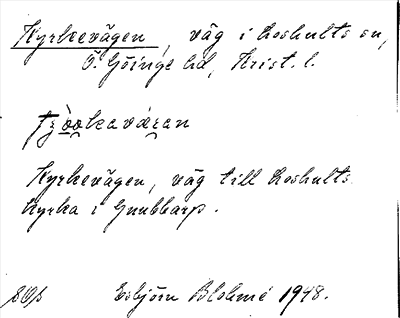 Kyrkevägen, väg i Loshults sn,
Ö. Göinge hd, Krist. l.
Kyrkevägen, väg till Loshults
kyrka i Gnubbarp.
Esbjörn Blohmé 1948.